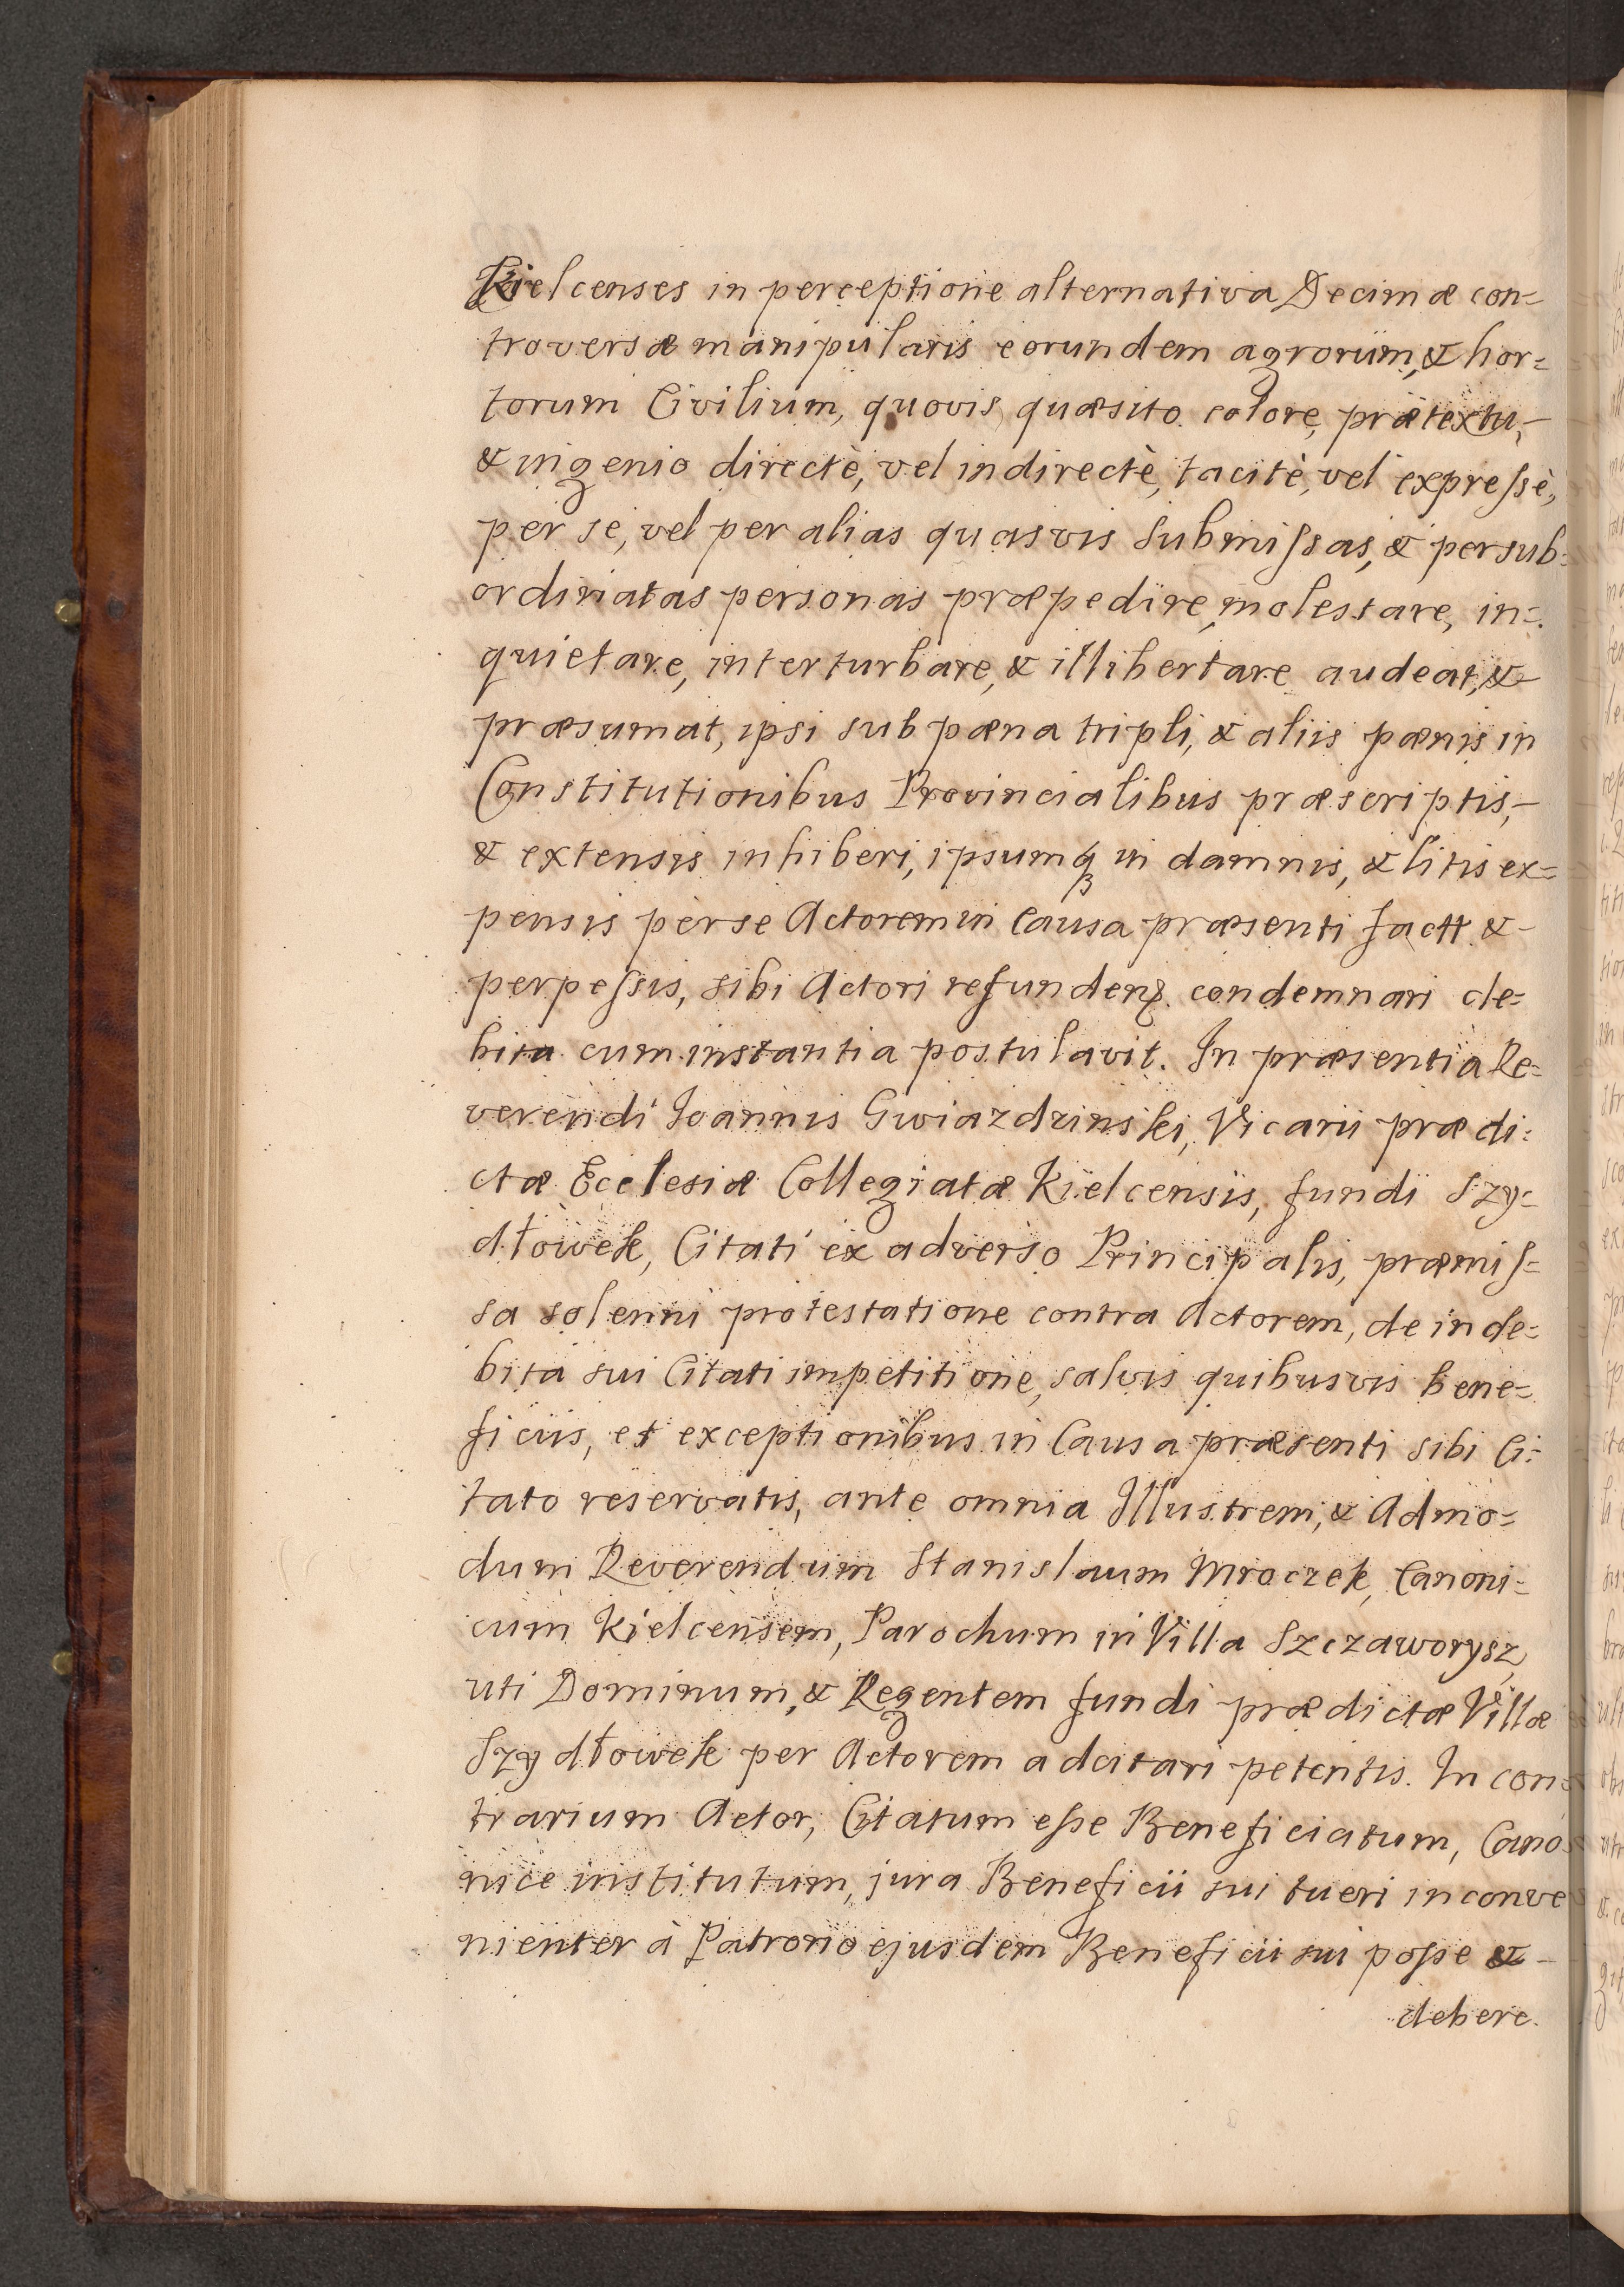 Kielcenses in perceptione alternativa Decimæ con=
troversæ manipularis eorundem agrorum, & hor=
torum Civilium, quovis quæsito colore, prætextu,
& ingenio directè, vel indirectè, tacitè, vel expreſsè,
per se, vel per alias quasvis submiſsas, & per sub=
ordinatas personas præpedire, molestare, in=
quietare, interturbare, & illibertare audeat, &
præsumat, ipsi sub pæna tripli, & aliis pænis in
Constitutionibus Provincialibus præscriptis,
& extensis inhiberi, ipsumqꝫ in damnis, & litis ex=
pensis per se Actorem in Causa præsenti factt &
perpeſsis, sibi Actori refundenꝫ condemnari de=
bita cum instantia postulavit. In præsentia Re=
verendi Joannis Gwiazdzinski, Vicarii prædi=
ctæ Ecclesiæ Collegiatæ Kielcensis, fundi Szy=
dłowek, Citati ex adverso Principalis, præmiſ=
sa solenni protestatione contra Actorem, de inde=
bita sui Citati impetitione, salvis quibusvis bene=
ficiis, et exceptionibus in Causa præsenti sibi Ci=
tato reservatis, ante omnia Illustrem, & Admo=
dum Reverendum Stanislaum Mroczek, Canoni=
cum Kielcensem, Parochum in Villa Szczaworysz,
uti Dominum, & Regentem fundi prædictæ Villæ
Szydłowek per Actorem adcitari petentis. In con=
trarium Actor, Citatum eſse Beneficiatum, Cano=
nice institutum, jura Beneficii sui tueri inconve=
nienter à Patrono ejusdem Beneficii sui poſse &
debere.